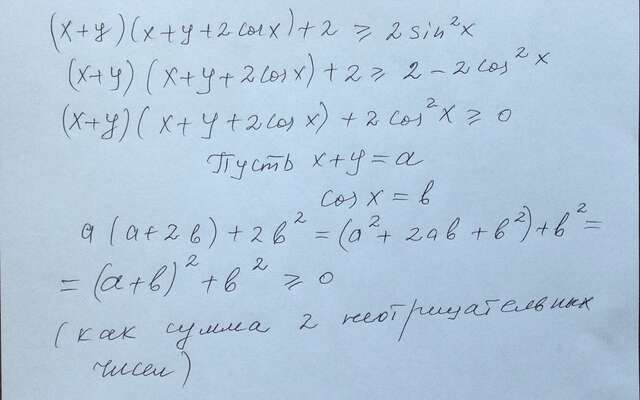 (x+y)(x+y+2cosx)+2 ⩾ 2sin²x
(x+y)(x+y+2cosx)+2 ⩾ 2-2cos²x
(x+y)(x+y+2cosx)+2cos²x ⩾ 0
Пусть x+y=a
cosx=в
a(a+2в)+2в²=(a²+2aв+в²)+в²=
=(a+в)²+в² ⩾ 0
(как сумма 2 неотрицательных
чисел)